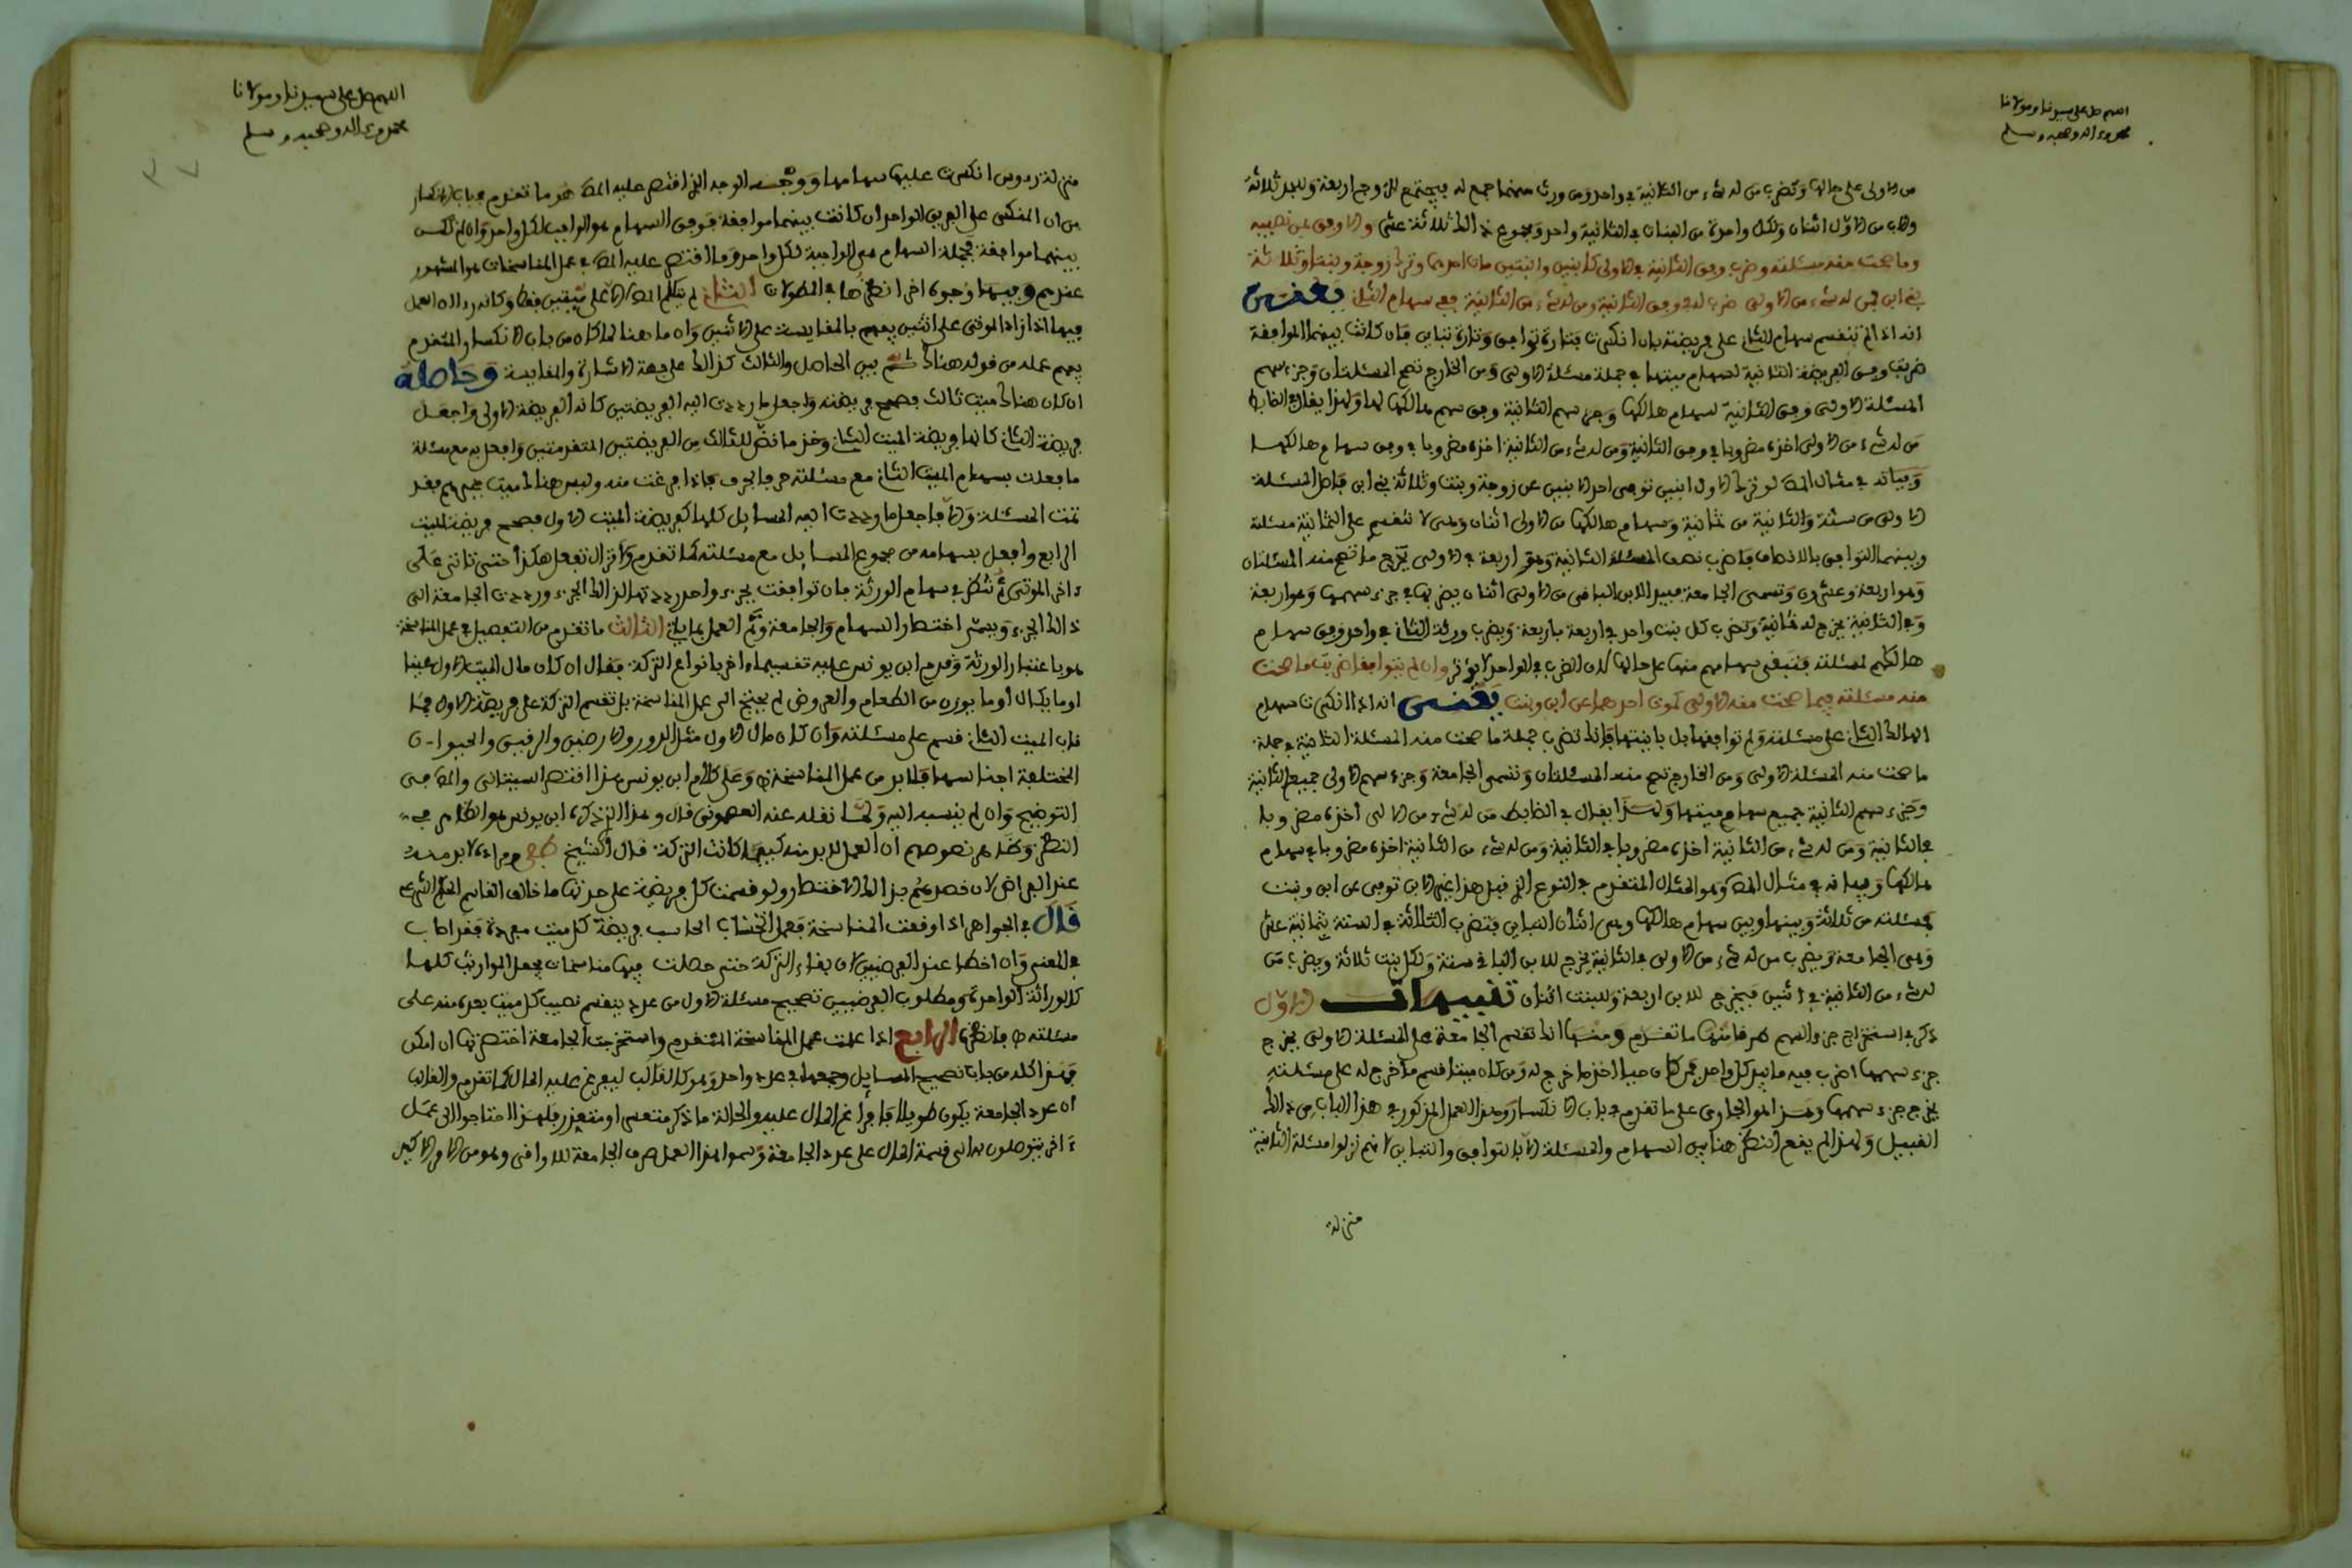 اللهم صل على سيدنا ومولانا
محمد وءاله وصحبه وسلم
من الاولى على حالها وتضرب من له شيء من الثانية في واحد ومن ورث منهما جمع له فيجتمع للزوج اربعة وللجد ثلاثة
وللاب من الاول اثنان ولكل واحدة من البنات في الثانية واحد ومجموع ذلك ثلاثة عشر والاوفق بين نصيبه
وما صحت منه مسئلته وضرب وفق الثانية في الاولى كابنين وابنتين مات احدهما وترك زوجة وبنتا وثلاثة
بني ابن فمن له شيء من الاولى ضرب له في وفق الثانية ومن له شيء من الثانية ففي سهام الثاني يعنى
انه اذا لم تنقسم سهام الثاني على فريضته بان انكسرت فتارة توافق وتارة تباين فان كانت بينهما الموافقة
ضربت وفق الفريضة الثانية لسهام ميتها في جملة مسئلة الاولى ومن الخارج تصح المسئلتان وجزء سهم
المسئلة الاولى وفق الثانية لسهام هالكها وجزء سهم الثانية وفق سهم هالكها لها ولهذا يقال في الضابط
من له شيء من الاولى اخذه مضروبا في وفق الثانية ومن له شيء من الثانية اخذه مضروبا في وفق سهام هالكها
وبيانه في مثال المص لو ترك الاول ابنين توفى احد الابنين عن زوجة وبنت وثلاثة بني ابن فاصل المسئلة
الاولى من ستة والثانية من ثمانية وسهام هالكها من الاولى اثنان وهى لا تنقسم على الثمانية مسئلة
وبينهما التوافق بالانصاف فاضرب نصف المسئلة الثانية وهو اربعة في الاولى يخرج ما تصح منه المسئلتان
وهو اربعة وعشرون وتسمى الجامعة فبيد الابن الباقى من الاولى اثنان يضربها في جزء سهمها وهو اربعة
وفي الثانية يخرج له ثمانية وتضرب كل بنت واحد في اربعة باربعة وتضرب ورثة الثاني في واحد وفق سهام
هالكهم لمسئلته فتبقى سهامهم منها على حالها لان الضرب في الواحد لا يوثر وان لم يتوافقا ضربت ما صحت
منه مسئلته فيما صحت منه الاولى كموت احدهما عن ابن وبنت يعنى انه اذا انكسرت سهام
الهالك الثاني على مسئلته ولم توافقها بل باينتها فانك تضرب جملة ما صحت منه المسئلة الثانية في جملة
ما صحت منه المسئلة الاولى ومن الخارج تصح منه المسئلتان وتسمى الجامعة وجزء سهم الاولى جميع الثانية
وجزء سهم الثانية جميع سهام ميتها ولهذا يقال في الضابط من له شيء من الاولى اخذه مضروبا
في الثانية ومن له شيء من الثانية اخذه مضروبا في الثانية ومن له شيء من الثانية اخذه مضروبا في سهام
هالكها وبيانه في مثال المص وهو المثال المتقدم في النوع الذي قبل هذا غير ان الابن توفى عن ابن وبنت
فمسئلته من ثلاثة وبينها وبين سهام هالكها وهى اثنان التباين فتضرب الثلاثة في الستة بثمانية عشر
وهى الجامعة وتضرب من له شيء من الاولى في الثانية يخرج للابن الباقي ستة ولكل بنت ثلاثة وتضرب من
له شيء من الثانية في اثنين فيخرج للابن اربعة وللبنت اثنان تنبيهات الاول
ذكر في استخراج جزء السهم طرقا منها ما تقدم ومنها انك تقسم الجامعة على المسئلة الاولى يخرج
جزء سهمها اضرب فيه ما بيد كل واحد فمن كان حيا اخذ ما خرج له ومن كان ميتا قسم ما خرج له على مسئلته
يخرج جزء سهمها وهذا هو الجارى على ما تقدم في باب الانكسار وهذا العمل المذكور في هذا الباب من ذلك
القبيل ولهذا لم يقع النظر هنا بين السهام والمسئلة الا بالتوافق والتباين لانهم نزلوا مسئلة الثانية
منزلة
اللهم صل على سيدنا ومولانا
محمد وءاله وصحبه وسلم
٣٧
منزلة رءوس انكسرت عليها سهامها ووجه الوجه الذي اقتصر عليه المص هو ما تقدم في باب الانكسار
من ان المنكسر على الفريق الواحد ان كانت بينهما موافقة فوفق السهام هو الواجب لكل واحد وان لم تكن
بينهما موافقة فجملة السهام هى الواجبة لكل واحد وما اقتصر عليه المص في عمل المناسخات هو المشهور
عندهم وفيها وجوه اخر انظرها في المطولات الثاني لم يتكلم المص الا على ميتين فقط وكانه راى ان العمل
فيها اذا زاد الموتى على اثنين يفهم بالمقايسة على الاثنين وان ما هنا لما كان من باب الانكسار المتقدم
يفهم عمله من قوله هناك ثم بين الحاصل والثالث كذلك على جهة الاشارة والمقايسة وحاصله
ان كان هناك ميت ثالث فصحح فريضته واجعل ما رددت اليه الفريضتين كانه الفريضة الاولى واجعل
فريضة الثالث كانها فريضة الميت الثاني وخذ ما نض للثالث من الفريضتين المتقدمتين وافعل به مع مسئلته
ما فعلت بسهام الميت الثاني مع مسئلته حرفا بحرف فاذا فرغت منه وليس هناك ميت غيرهم فقد
تمت المسئلة والا فاجعل ما رددت اليه المسايل كلها كفريضة الميت الاول فصحح فريضة الميت
الرابع وافعل بسهامه من مجموع المسايل مع مسئلته كما تقدم ولا تزال تفعل هكذا حتى تاتى على
ءاخر الموتى ثم تنظر في سهام الورثة فان توافقت بجزء واحد رددتها لذلك الجزء ورددت الجامعة الى
ذلك الجزء ويسمى اختصار السهام والجامعة وتم العمل الثالث ما تقدم من التفصيل في عمل المناسخة
هو باعتبار الورثة وقدم ابن يونس عليه تقسيما ءاخر بانواع التركة فقال ان كان مال الميت الاول عينا
او ما يكال او ما يوزن من الطعام والعروض لم يحتج الى عمل المناسخة بل تقسم التركة على فريضة الاول فما
ناب الميت الثاني قسم على مسئلته وان كان مال الاول مثل الدور والارضين والرقيق والحيوان
المختلفة اجناسها فلابد من عمل المناسخة وعلى كلام ابن يونس هذا اقتصر السبتانى والمص في
التوضيح وان لم ينسبه اليه ولما نقله عنه العصنونى قال وهذا الذي ذكره ابن يونس هو الظاهر في
النظر وظاهر نصوصهم ان العمل لابد منه كيفما كانت التركة قال الشيخ طفى ومراده لابد منه
عند الفراض لان قصدهم بذلك الاختصار ولو قسمت كل فريضة على حدتها ما خالف القاسم الحكم الشرعى
قال في الجواهر اذا وقعت المناسخة فعمل الحساب الحاسب فريضة كل ميت مفردة فقد اصاب
في المعنى وان اخطا عند الفرضيين لان بقاء التركة حتى حصلت فيها مناسخات يجعل الموارث كلها
كالوراثة الواحدة ومطلوب الفرضيين تصحيح مسئلة الاول من عدد ينقسم نصيب كل ميت بعده منه على
مسئلته فانظره الرابع اذا عملت عمل المناسخة المتقدم واستخرجت الجامعة اختصرتها ان امكن
وهذا كله من باب تصحيح المسايل وجمعها في عدد واحد وهو كالقالب ليفرغ عليه المال كما تقدم والغالب
ان عدد الجامعة يكون طويلا فافراغ المال عليه والحالة ما ذكر متعسر او متعذر فلهذا احتاجوا الى عمل
ءاخر يتوصلون به الى قسمة المال على عدد الجامعة وسموا هذا العمل صرف الجامعة للاواقى وهو من الامر الاكيد